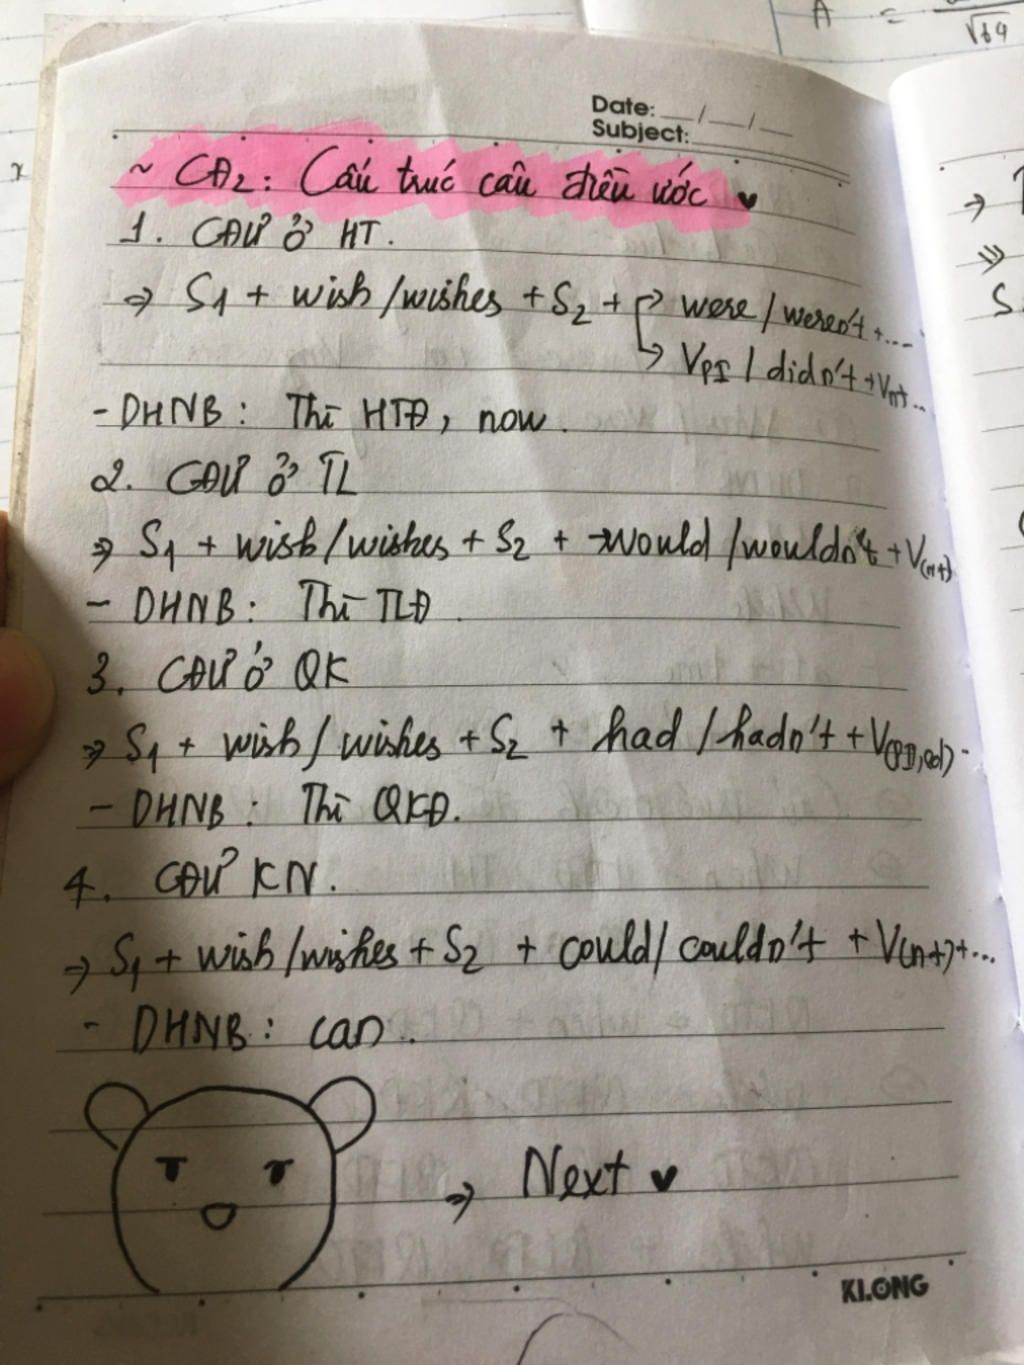 A = √64
Date: __/__/__
Subject:
x
~ CĐ2: Cấu trúc câu điều ước
1. CĐƯ Ở HT.
⇒ S1 + wish /wishes + S2 + → were / weren't + ....
→ VPI / didn't + Vnt ...
- DHNB : Thì HTĐ, now.
2. CĐƯ Ở TL
⇒ S1 + wish/wishes + S2 + would /wouldn't + V(nt)
- DHNB : Thì TLĐ.
3. CĐƯ Ở QK
⇒ S1 + wish / wishes + S2 + had / hadn't + V(PII,ed) -
- DHNB : Thì QKĐ.
4. CĐƯ KN.
⇒ S1 + wish /wishes + S2 + could/ couldn't + V(nt)+...
- DHNB : can.
⇒ Next
KLONG